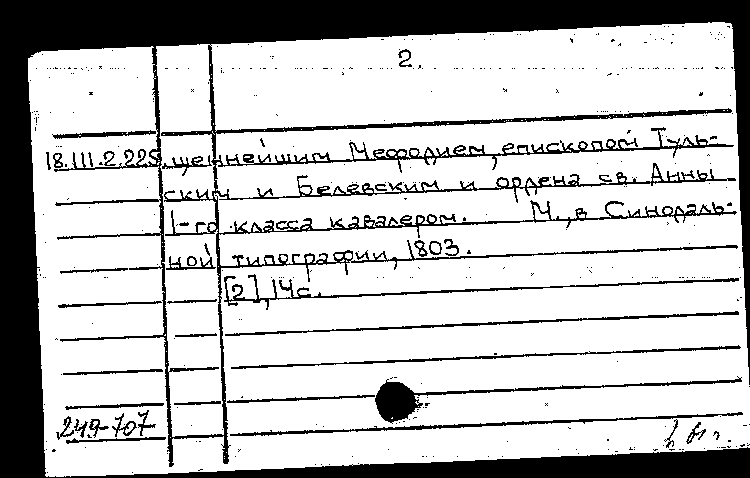 2.
18.III.2.225. щеннейшим Мефодием, епископом Туль-
ским и Белевским и ордена св. Анны
1-го класса кавалером. М., в Синодаль-
ной типографии, 1803.
[2], 14с.
249-707